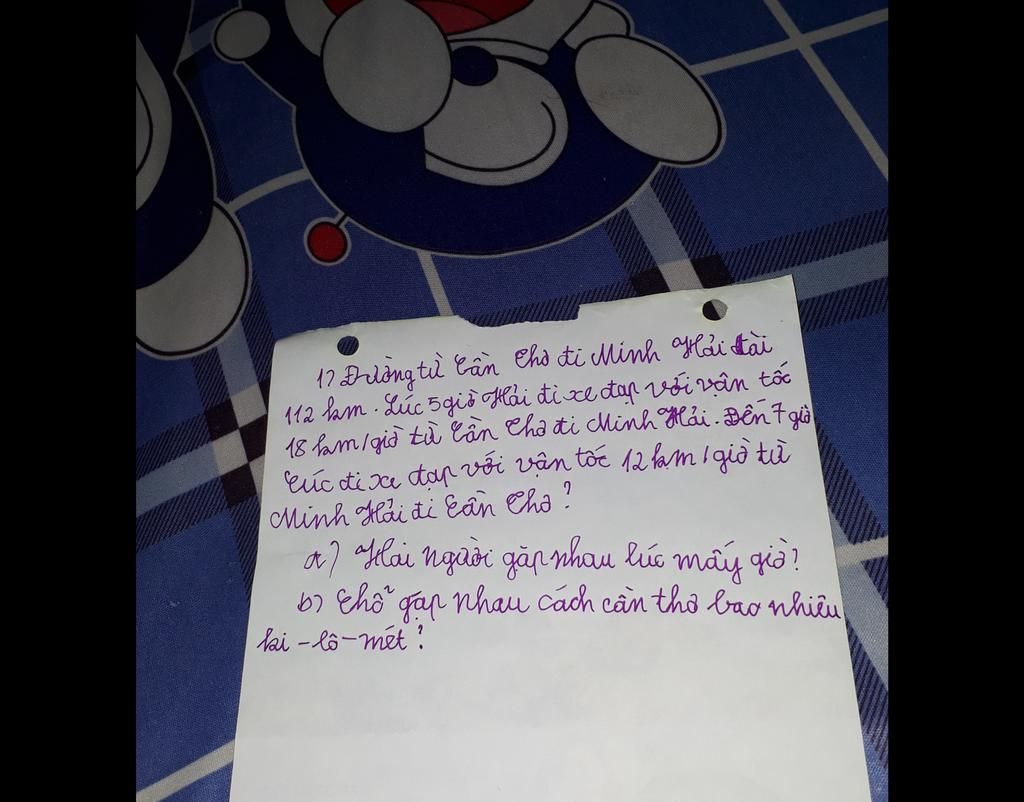 1) Đường từ Cần Thơ đi Minh Hải dài
112 km. Lúc 5 giờ Hải đi xe đạp với vận tốc
18 km/giờ từ Cần Thơ đi Minh Hải. Đến 7 giờ
Cúc đi xe đạp với vận tốc 12 km/giờ từ
Minh Hải đi Cần Thơ?
a) Hai người gặp nhau lúc mấy giờ?
b) Chỗ gặp nhau cách cần thơ bao nhiêu
ki-lô-mét?